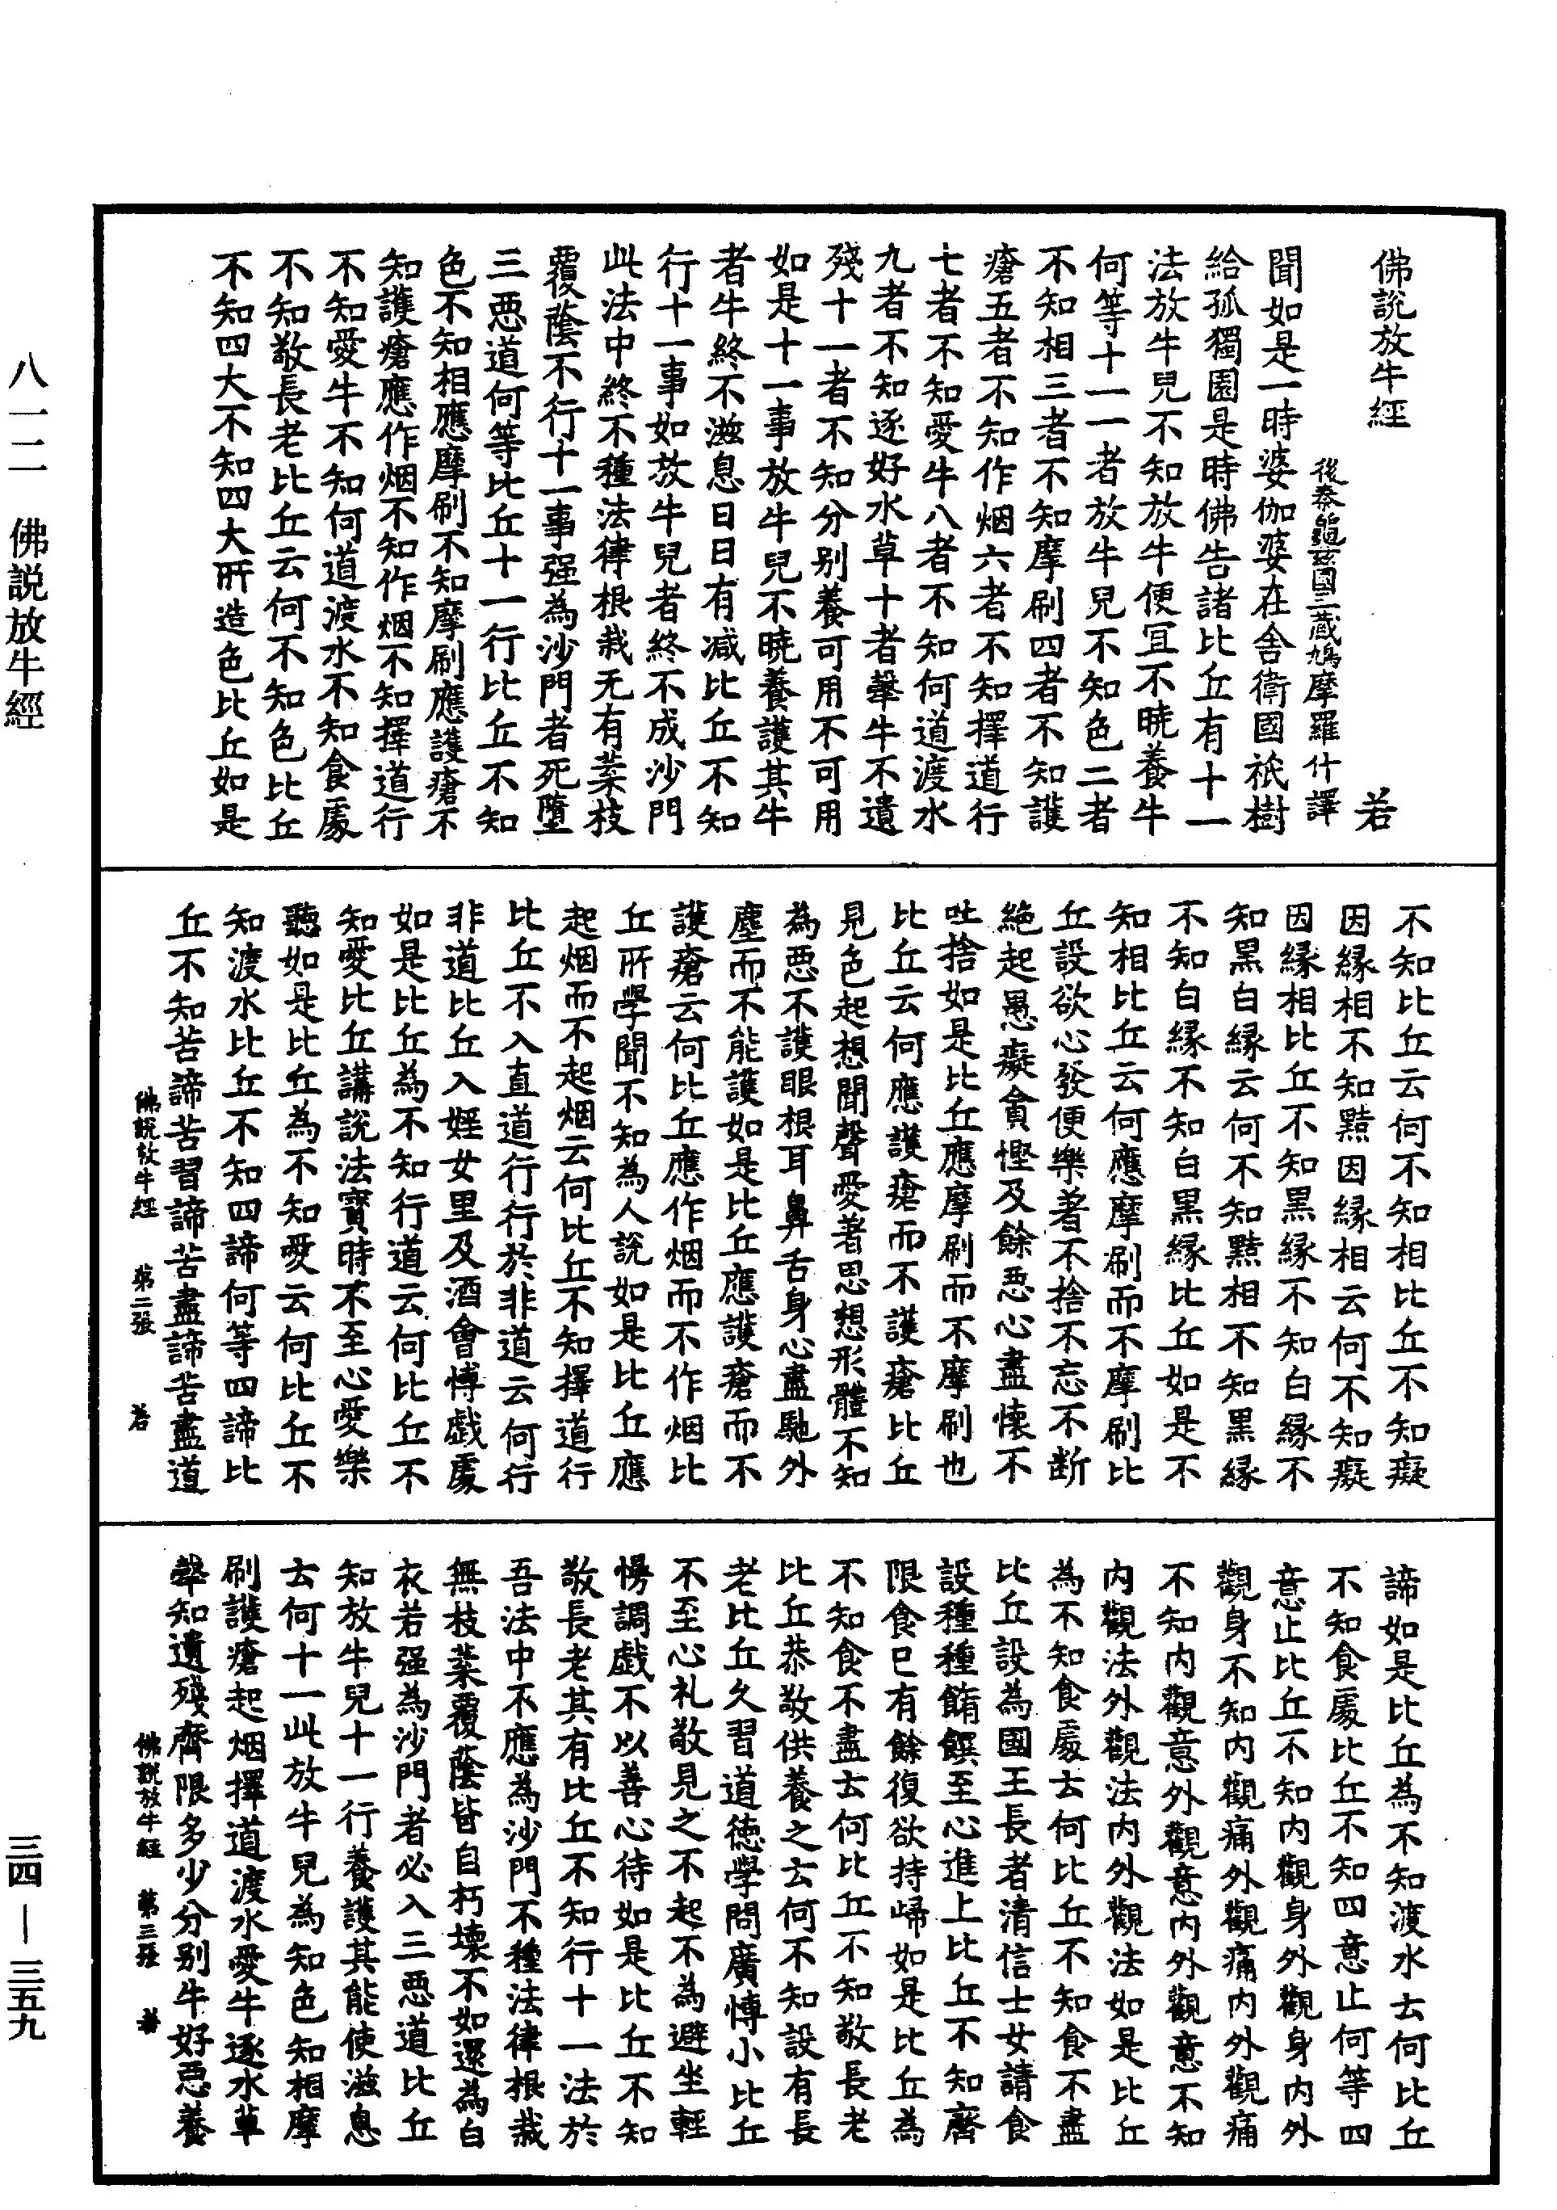 佛說放牛經
若
後秦龜茲國三藏鳩摩羅什譯
聞如是一時婆伽婆在舍衛國祇樹
給孤獨園是時佛告諸比丘有十一
法放牛兒不知放牛便宜不曉養牛
何等十一一者放牛兒不知色二者
不知相三者不知摩刷四者不知護
瘡五者不知作烟六者不知擇道行
七者不知愛牛八者不知何道渡水
九者不知逐好水草十者㲉牛不遺
殘十一者不知分別養可用不可用
如是十一事放牛兒不曉養護其牛
者牛終不滋息日日有減比丘不知
行十一事如放牛兒者終不成沙門
此法中終不種法律根栽无有葉枝
覆蔭不行十一事强為沙門者死墮
三惡道何等比丘十一行比丘不知
色不知相應摩刷不知摩刷應護瘡不
知護瘡應作烟不知作烟不知擇道行
不知愛牛不知何道渡水不知食處
不知敬長老比丘云何不知色比丘
不知四大不知四大所造色比丘如是
不知比丘云何不知相比丘不知癡
因緣相不知黠因緣相云何不知癡
因緣相比丘不知黑緣不知白緣不
知黑白緣云何不知黠相不知黑緣
不知白緣不知白黑緣比丘如是不
知相比丘云何應摩刷而不摩刷比
丘設欲心發便樂著不捨不忘不斷
絕起愚癡貪慳及餘惡心盡懷不
吐捨如是比丘應摩刷而不摩刷也
比丘云何應護瘡而不護瘡比丘
見色起想聞聲愛著思想形體不知
為惡不護眼根耳鼻舌身心盡馳外
塵而不能護如是比丘應護瘡而不
護瘡云何比丘應作烟而不作烟比
丘所學聞不知為人說如是比丘應
起烟而不起烟云何比丘不知擇道行
比丘不入直道行行於非道云何行
非道比丘入婬女里及酒會博戲處
如是比丘為不知行道云何比丘不
知愛比丘講說法寶時不至心愛樂
聽如是比丘為不知愛云何比丘不
知渡水比丘不知四諦何等四諦比
丘不知苦諦苦習諦苦盡諦苦盡道
佛說放牛經 第二張 若
諦如是比丘為不知渡水去何比丘
不知食處比丘不知四意止何等四
意止比丘不知內觀身外觀身內外
觀身不知內觀痛外觀痛內外觀痛
不知內觀意外觀意內外觀意不知
內觀法外觀法內外觀法如是比丘
為不知食處去何比丘不知食不盡
比丘設為國王長者清信士女請食
設種種餚饌至心進上比丘不知齊
限食已有餘復欲持歸如是比丘為
不知食不盡去何比丘不知敬長老
比丘恭敬供養之去何不知設有長
老比丘久習道德學問廣博小比丘
不至心礼敬見之不起不為避坐輕
慢調戲不以善心待如是比丘不知
敬長老其有比丘不知行十一法於
吾法中不應為沙門不種法律根栽
無枝葉覆蔭皆自朽壞不如還為白
衣若强為沙門者必入三惡道比丘
知放牛兒十一行養護其能使滋息
去何十一此放牛兒為知色知相摩
刷護瘡起烟擇道渡水愛牛逐水草
㲉知遺殘齊限多少分別牛好惡養
佛說放牛經 第三張 若
八一二 佛說放牛經
三四—三五九